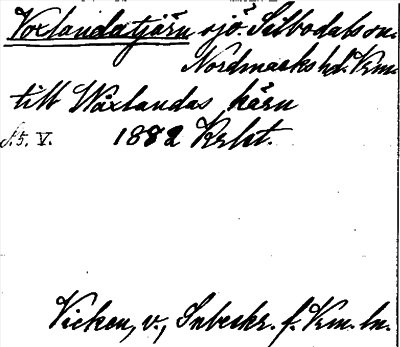 Voxlandatjärn sjö. Silbodals sn.
Nordmarks hd. Vrm.
till Wåxlandas kärn
S. 5. V. 1882 Krht.
Vicken, v., Inbeskr. f. Vrm. ln.